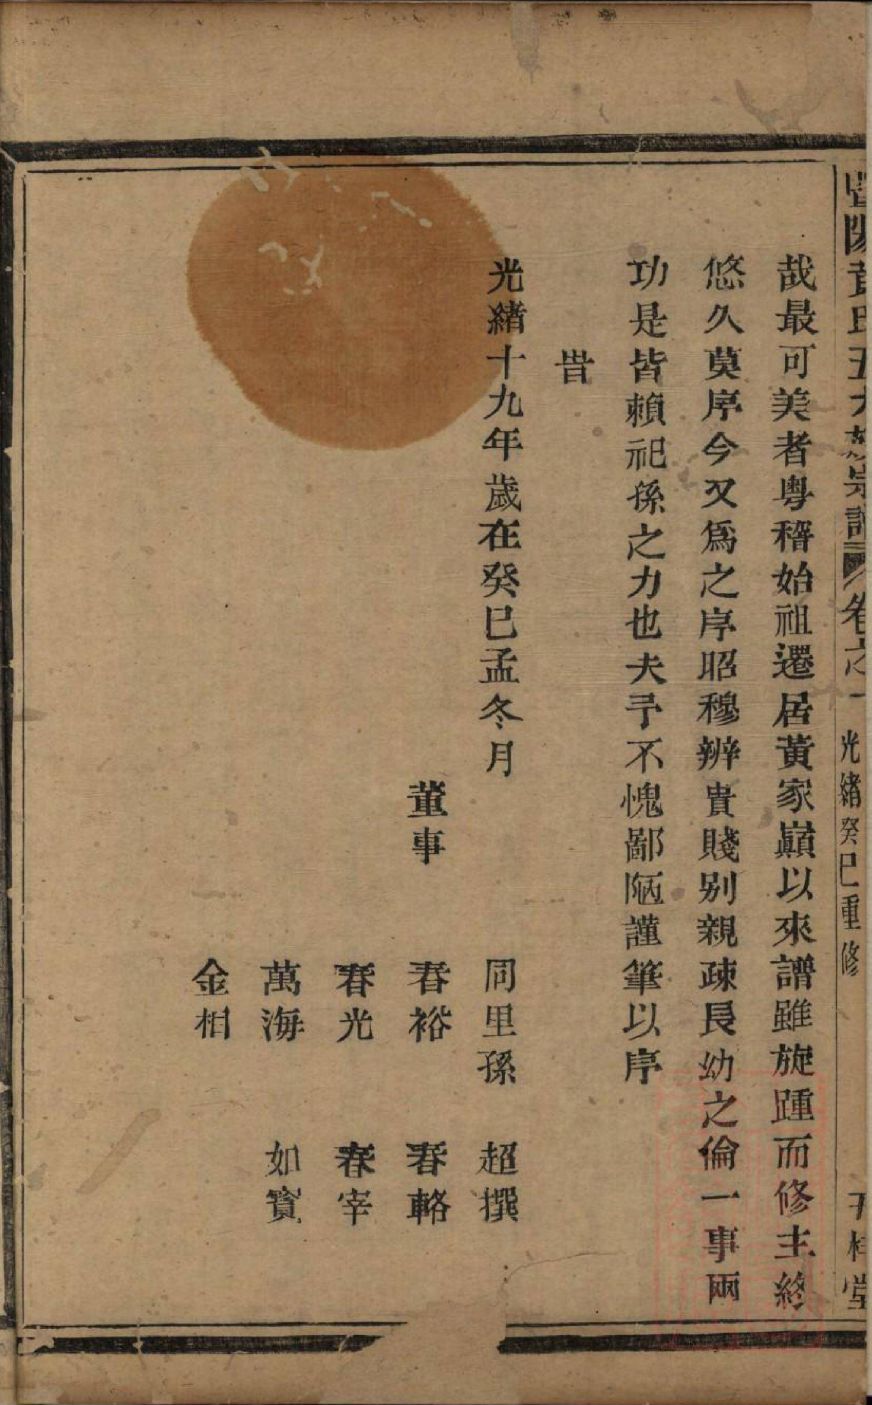 暨陽黃氏五大族宗譜 卷之一 光緒癸巳重修 五桂堂
哉最可美者粤稽始祖遷居黃家巔以來譜雖旋踵而修主終
悠久莫序今又爲之序昭穆辨貴賤别親疎長幼之倫一事兩
功是皆賴祀孫之力也夫予不愧鄙陋謹筆以序
旹
光緒十九年歲在癸巳孟冬月 同里孫 超撰
董事 春裕 春輅
春光 春宰
萬海 如寳
金相